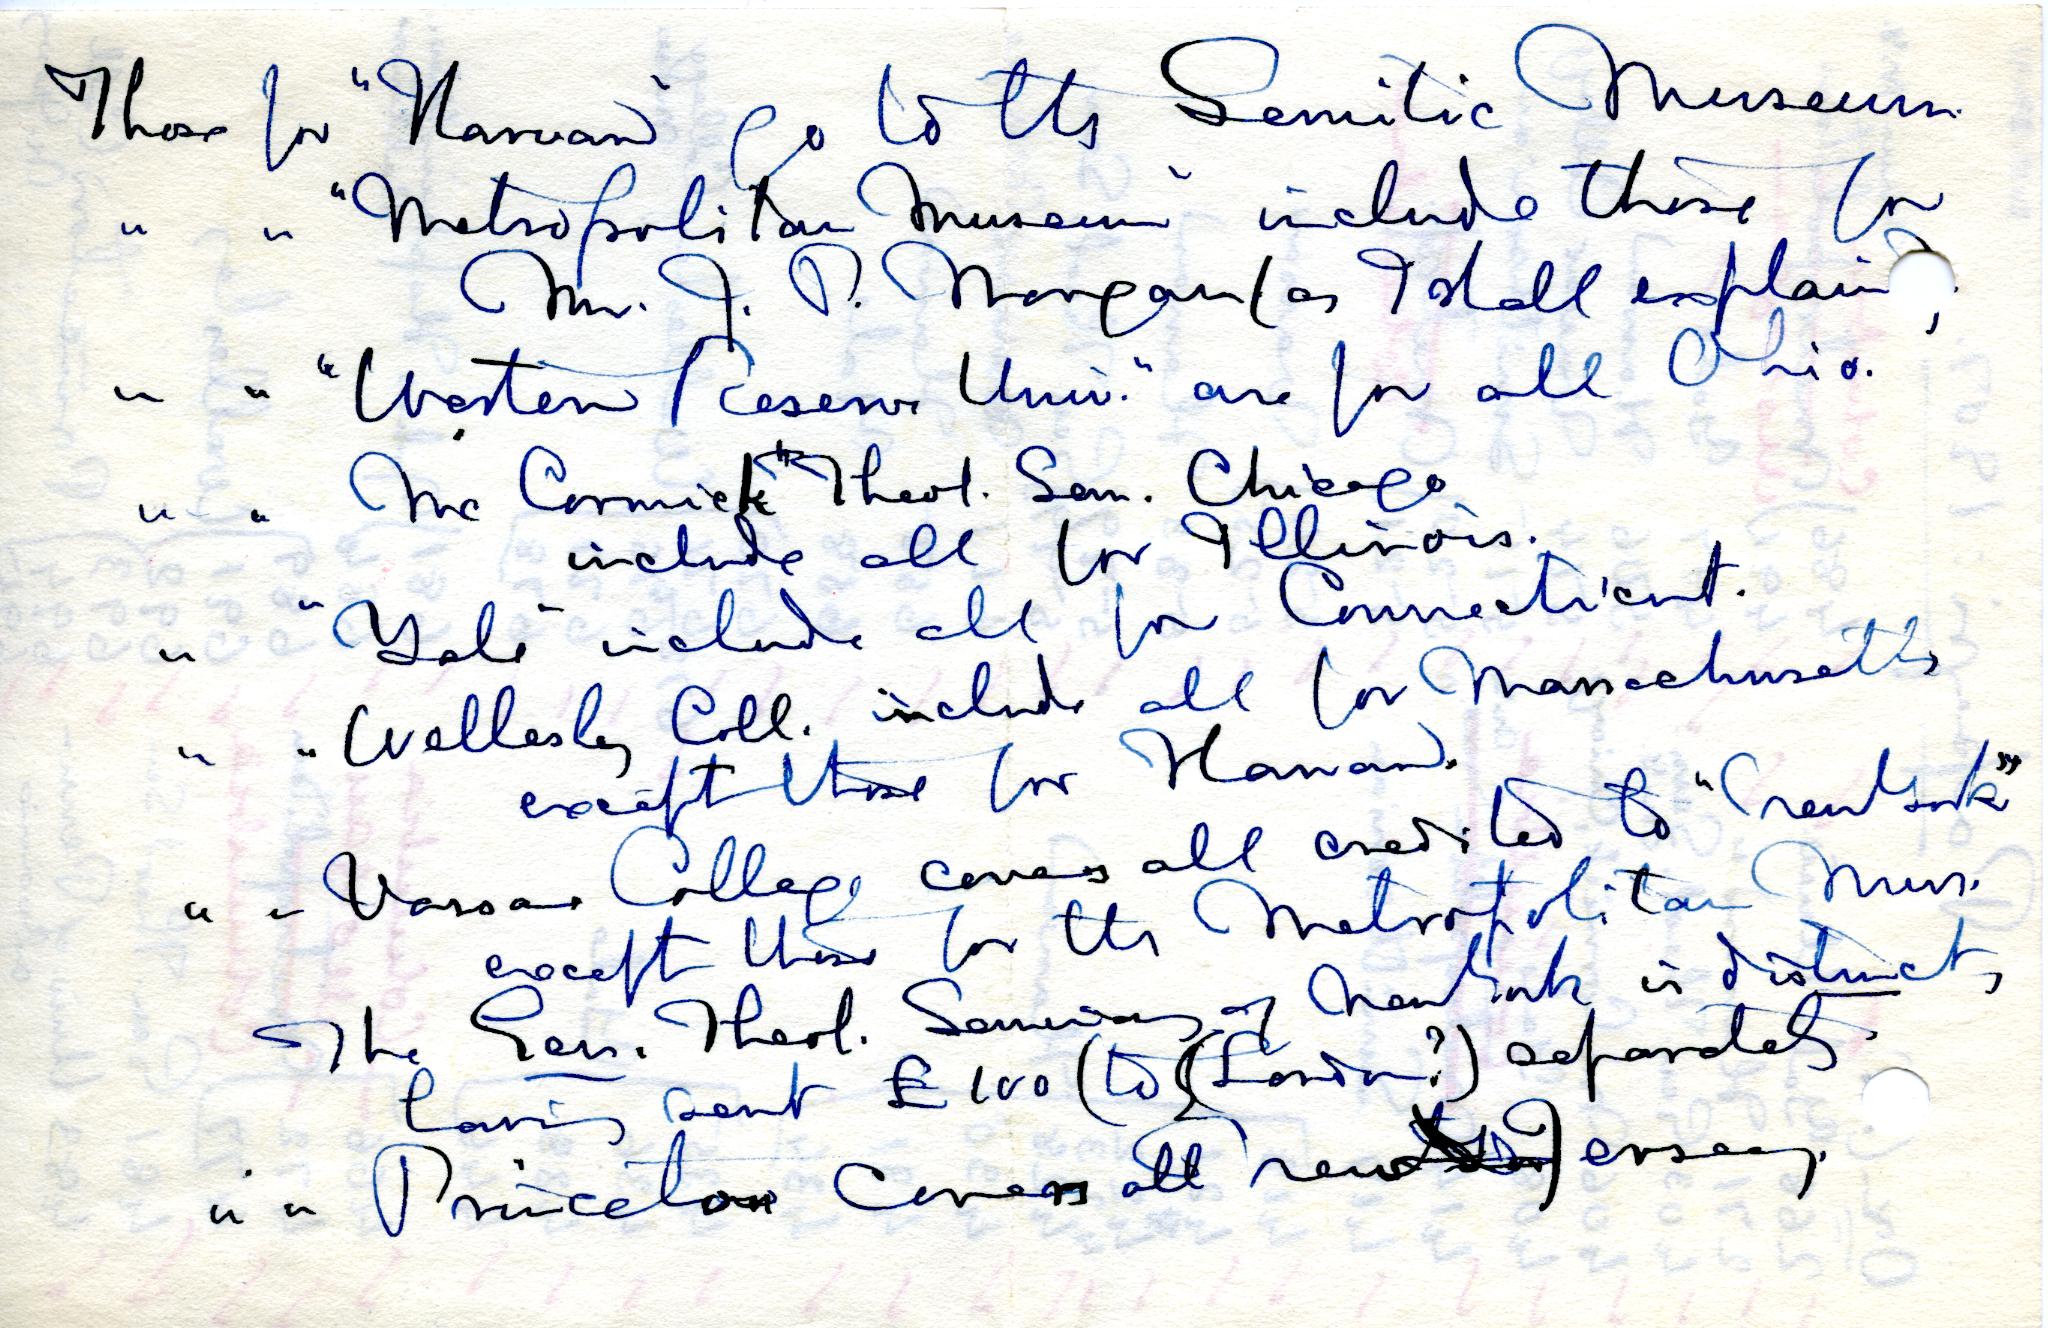 Those for "Harvard" go to the Semitic Museum.
" " "Metropolitan Museum" include those for
Mr. J. P. Morgan (as I shall explain),
" " "Western Reserve Univ." are for all Ohio.
" " Mc Cormick" Theol. Sem. Chicago
include all for Illinois.
" "Yale" include all for Connecticut.
" " Wellesley Coll. include all for Massachusetts
except those for Harvard.
" " Vassar College covers all credited to "New York"
except those for the Metropolitan Mus.
The Gen. Theol. Seminary of New York is distinct,
having sent £100 (to (London?) separately.
" " Princeton covers all New Jersey.